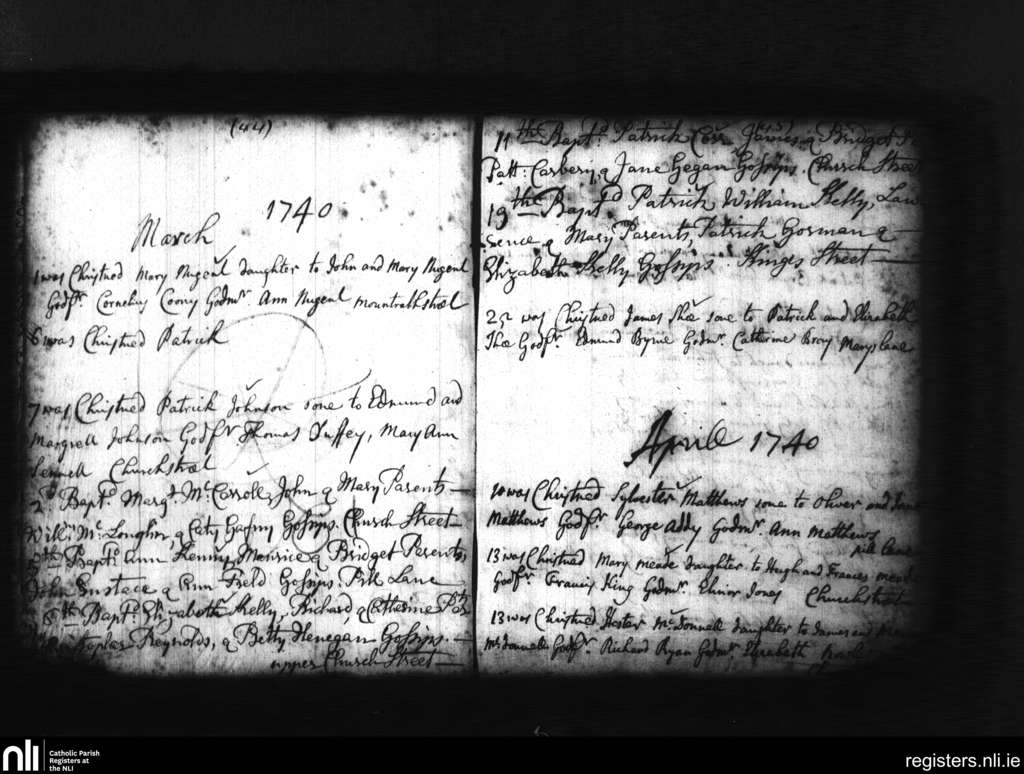 (44)
1740
March
1 was Christned Mary Nugent daughter to John and Mary Nugent
Godfr. Cornelius Coony Godmr. Ann Nugent mountrathstreet
6 was Christned Patrick
7 was Christned Patrick Johnson sone to Edmund and
Margrett Johnson Godfr. Thomas Tuffey, Mary Ann
Churchstreet
2d Baptd. Margt. Mc.Carroll, John & Mary Parents
Willm. Mc.Loughlin & Caty Gossips. Church Street
Bapt. Ann Kenny, Morrice & Bridget Parents
John Eustace & Ann Field Gossips. Pill Lane
8th Bapt. Elizabeth Kelly, Richard, & Catherine
Reynolds, & Betty Henegan Gossips.
upper Church Street
(45)
11th Baptd. Patrick James & Bridget
Patt: Carbery, & Jane Gegan Gossips. Church Street
19th Baptd Patrick William Kelly, Law
rence & Mary Parents, Patrick Gorman &
Elizabeth Kelly Gossips. Kings Street
25 was Christned James Shee sone to Patrick and Elizabeth
Shee Godfr. Edmund Byrne Godmr. Catherine Bray Maryslane
Aprill 1740
10 was Christned Sylvester Matthews sone to Oliver and Jane
Matthews Godfr. George Addy Godmr. Ann Matthews
pill lane
13 was Christned Mary meade daughter to Hugh and Frances meade
Godfr. Francis King Godmr. Elinor Jones Churchstreet
13 was Christned Hester McDonnell daughter to James and
McDonnell Godfr. Richard Ryan Godmr. Elizabeth
nli
Catholic Parish
Registers at
the NLI
registers.nli.ie